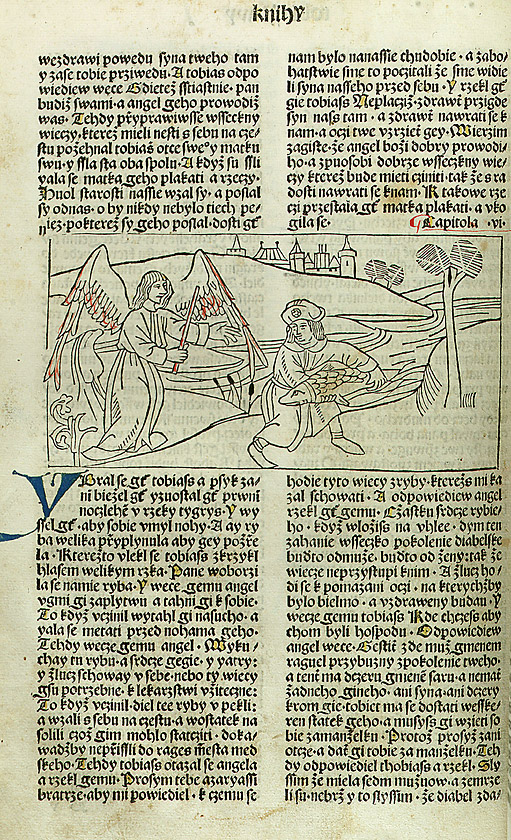 knihy
wezdrawi powedu syna tweho tam
y zase tobie prziwedu. A tobias odpo
wiediew wece Gdietež sstiastnie. pan
budiž swami. a angel geho prowodiž
was. Tehdy przyprawiwsse wsseckny
wieczy. kterez mieli nesti s sebu na cze/
stu požehnal tobiáš otce swe°y matku
swu. y ssla sta oba spolu. A když su ssli
yala se matka geho plakati a rzeczy.
huol starosti nassie wzal sy. a poslal
sy odnas. o by nikdy nebylo tiech pe/
niez. pokterež sy geho poslal. dosti gt
nam bylo nanassie chudobie. a zabo/
hatstwie sme to pocztali že sme widie
li syna nasseho przed sebu. Y rzekl gt
gie tobiass Neplacziž. zdrawt przigde
syn nass tam. a zdrawt nawrati se k
nam. a oczi twe vzrziet gey. Wierzim
zagiste. že angel boži dobry prowodi/
ho. a zpuosobi dobrze wsseczkny wie/
czy kterež bude mieti cziniti. tak že s ra
dosti nawrati se knam. K takowe rze
czi przestala gt matka plakati. a vko
gila se. Capitola .vi.
VBral se gt tobiass a psyk za/
ni biežel gt yznostal gt prwni
noczlehe v rzeky tygrys. Y wy
ssel gt. aby sobie vmyl nohy. A ay ry
ba welika przyplynula aby gey pozrze
la. Kterežto vlekl se tobiass zkrzykl
hlasem welikym rzka. Pane woborzi
la se namie ryba. Y wece gemu angel
ygmi gi zaplytwu a tahni gi k sobie.
To když vczinil wytahl gi nasucho. a
yala se metati przed nohama geho.
Tehdy wecze gemu angel. Wyku/
chay tu rybu. a srdcze gegie. y yatry:
y žlucz schoway v sebe. nebo ty wiecy
gsu potrzebne. k lekarzstwi vžiteczne:
To když vczinil. diel tee ryby v pekli:
a wzali s sebu na czestu. a wostatek na
solili czož gim mohlo statczиti. doka/
wadžby neprzissli do rages miesta med
skeho. Tehdy tobias otazal se angela
a rzekl gemu. Prosym tebe azaryassi
bratrze. aby mi powiediel. k czemu se
hodie tyto wieczy z ryby. kterežs mi ka
zal schowati. A odpowiediew angel
rzekl gt gemu. Cžastku srdcze rybie/
ho. když wložiss na vhlee. dym ten
zahanie wsseczko pokolenie diabelske
budto od muže. budto od ženy: tak že
wiecze neprzystupi knim. A žlucz ho/
di se k pomazani oczi. na kterychžby
bylo bielmo. a vzdraweny budau. Y
wecze gemu tobiass Kde chczess aby
chom byli hospodu. Odpowiediew
angel wece. Gestit zde muž gmenem
raguel przybuzny zpokolenie tweho.
a tent ma dczeru gmene sara. a nemat
žadneho gineho. ani syna. ani dczery
krom gie. tobiet ma se dostati wesske/
ren statek geho. a musyss gi wzieti so
bie za manželku. Protož prosyž zani
otcze. a dat gi tobie za manželku. Teh
dy odpowiediel thobiass a rzekl. Sly
ssim že miela sedm mužuow. a zemrze
li su. nebrž y to slyssim. že diabel zda/